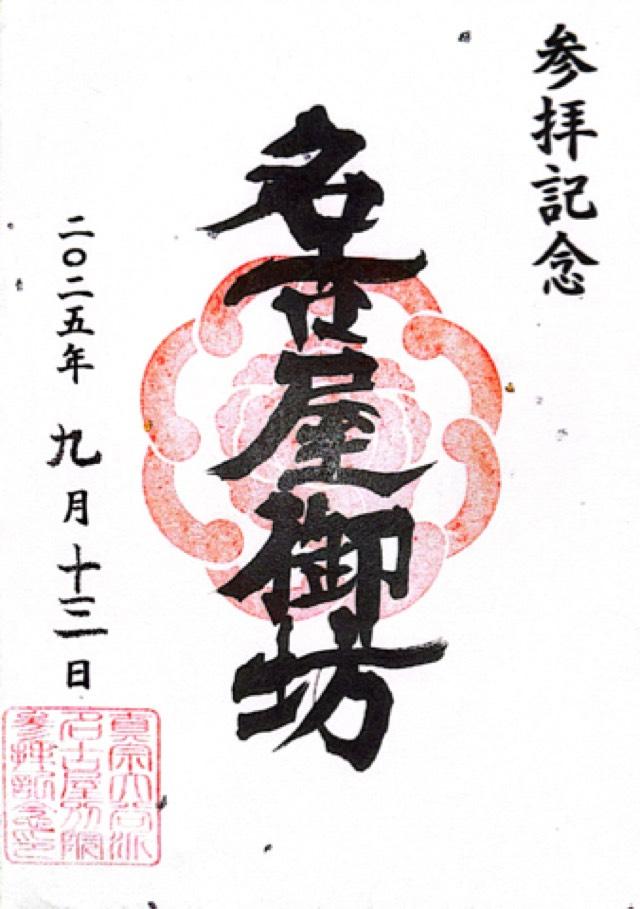 参拝記念
名古屋御坊
二〇二五年 九月十三日
真宗大谷派
名古屋別院
参拝記念印